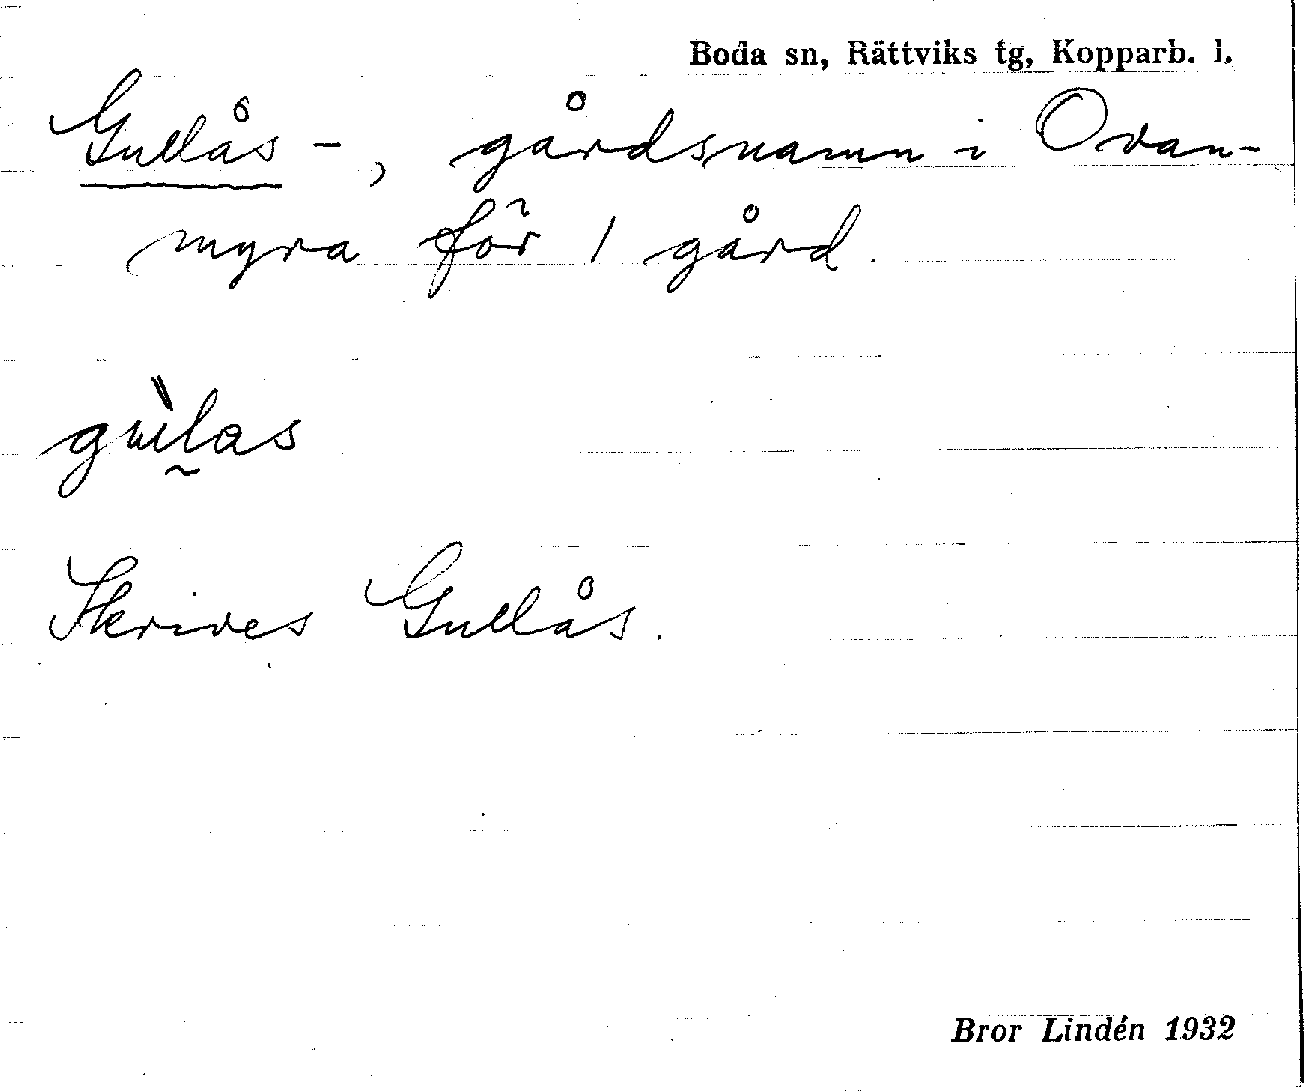 Boda sn, Rättviks tg, Kopparb. l.
Gullås -, gårdsnamn i Ovan-
myra för 1 gård.
gu̇̀l̰as
Skrives Gullås.
Bror Lindén 1932